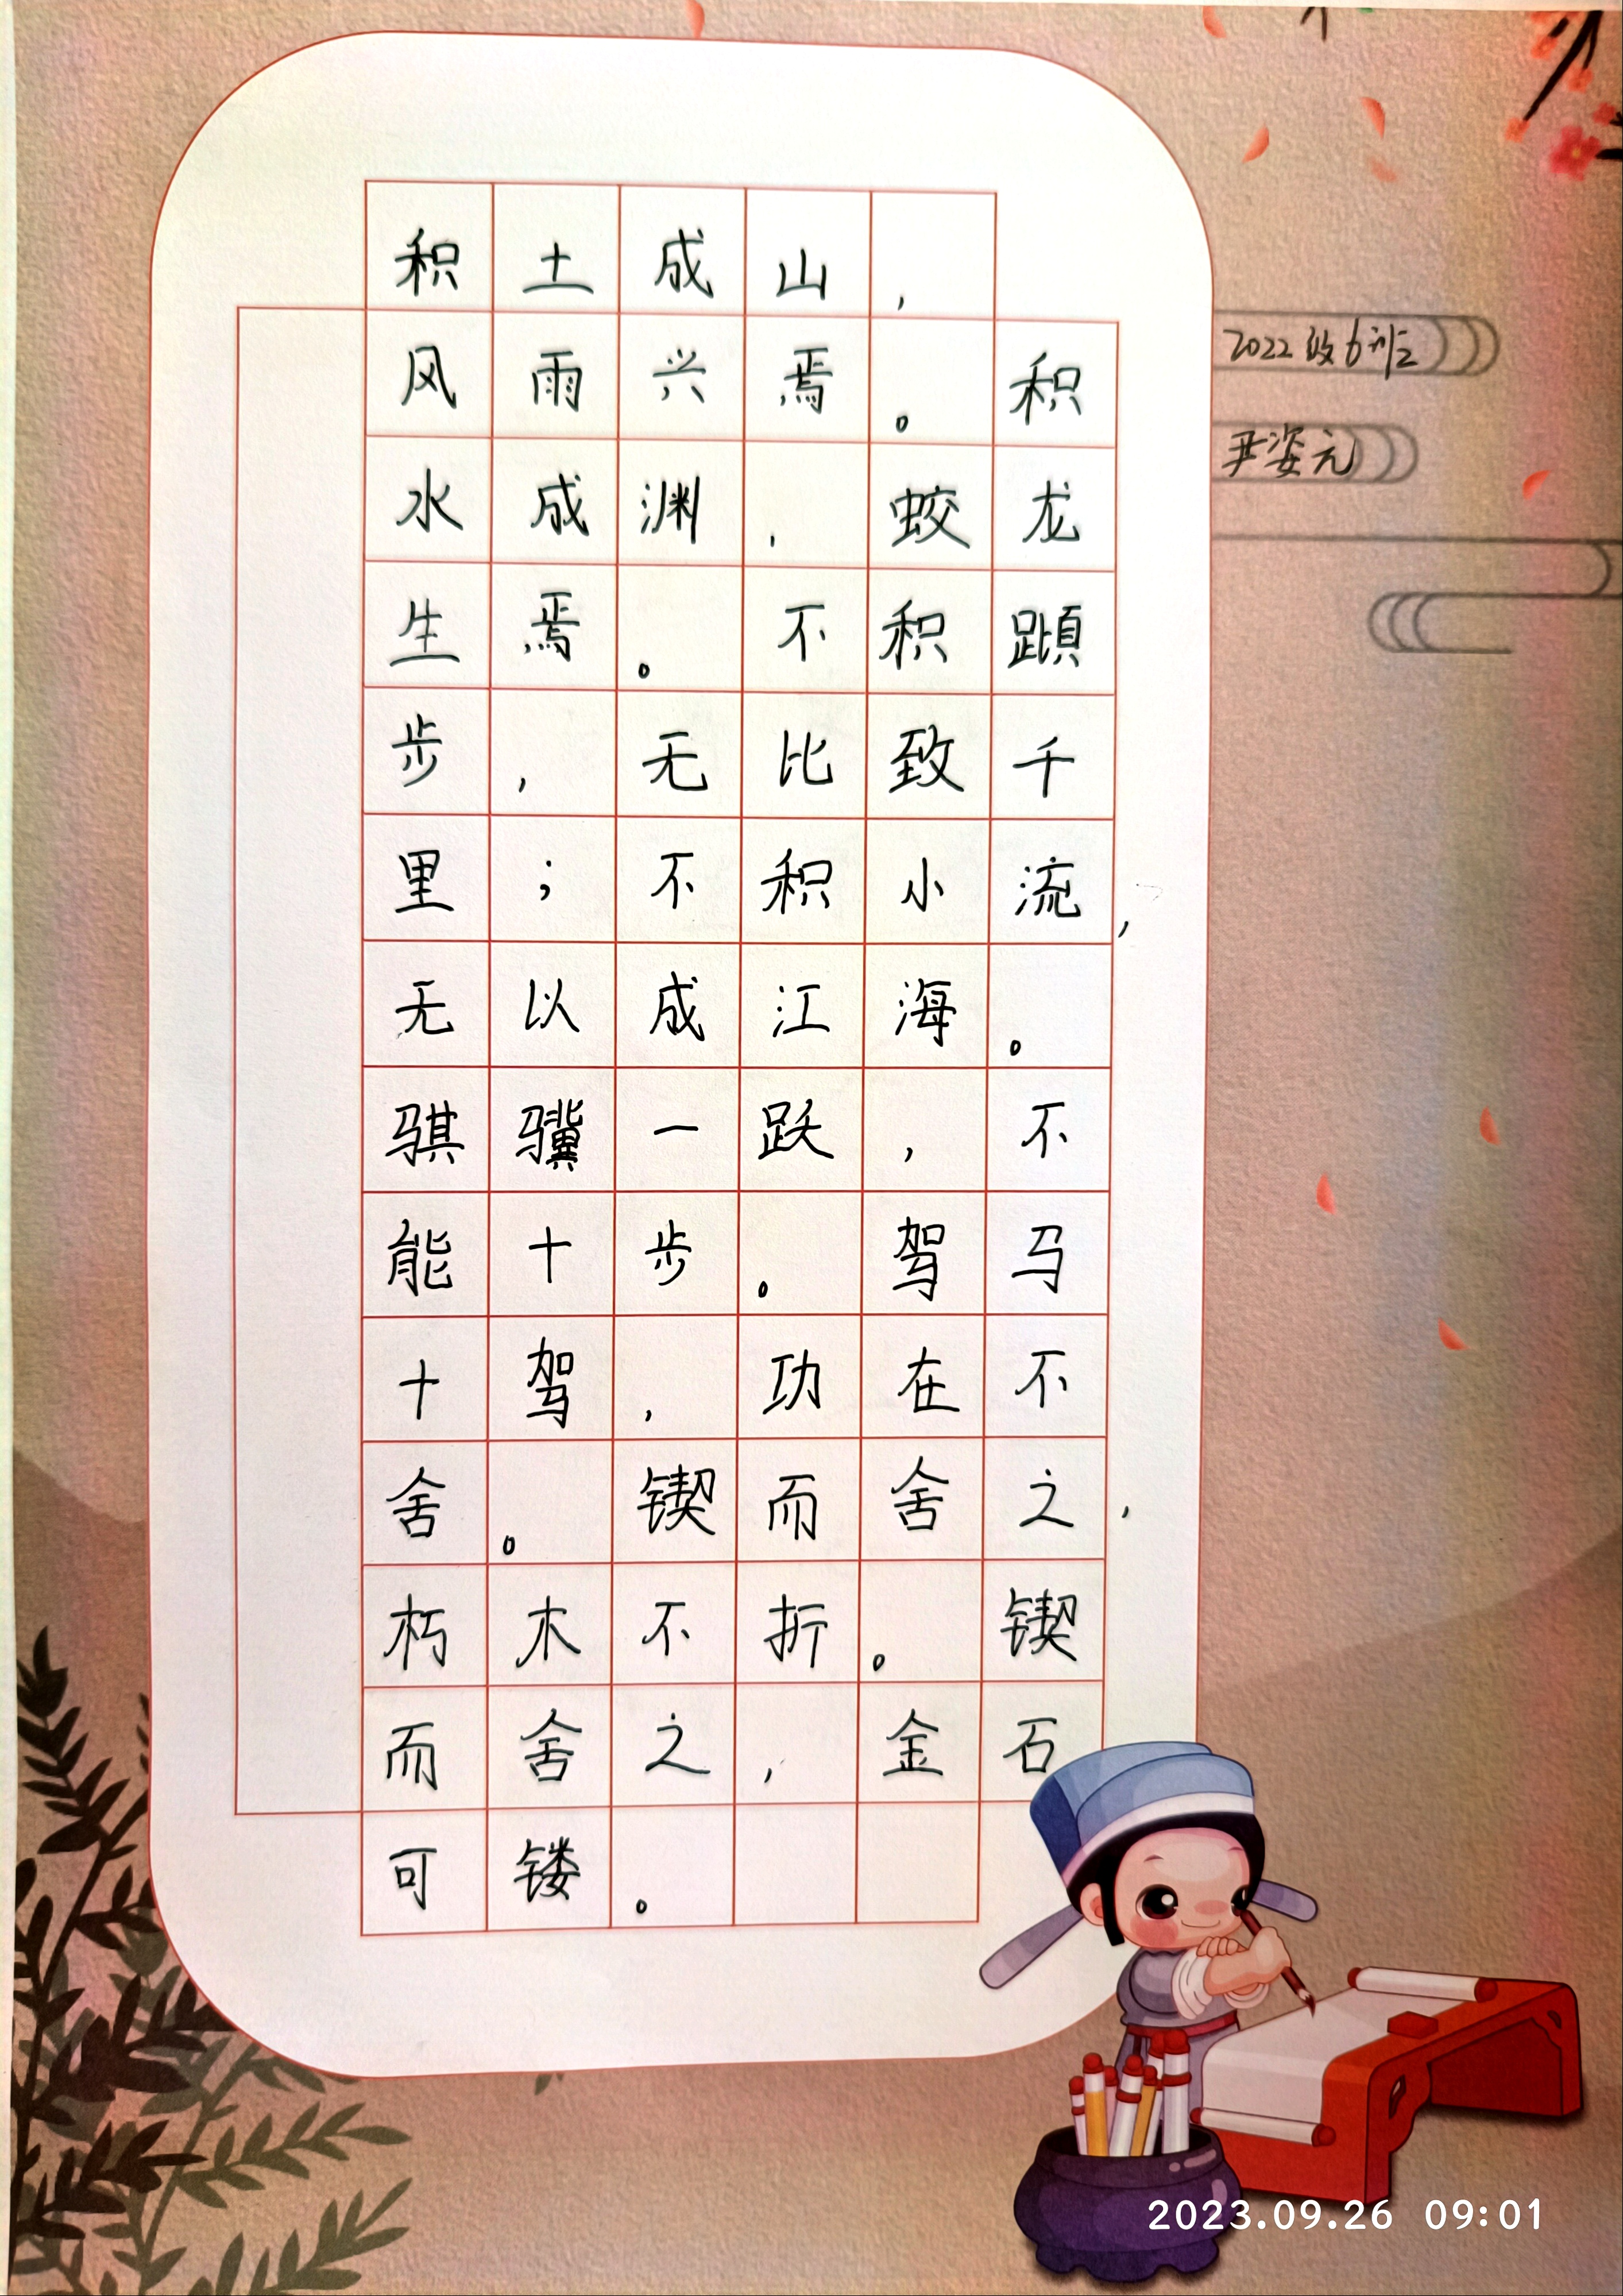 积土成山，
风雨兴焉。积
水成渊，蛟龙
生焉。不积蹞
步，无比致千
里；不积小流，
无以成江海。
骐骥一跃，不
能十步。驾马
十驾，功在不
舍。锲而舍之，
朽木不折。锲
而舍之，金石
可镂。
2022级6班
尹姿元
2023.09.26 09:01